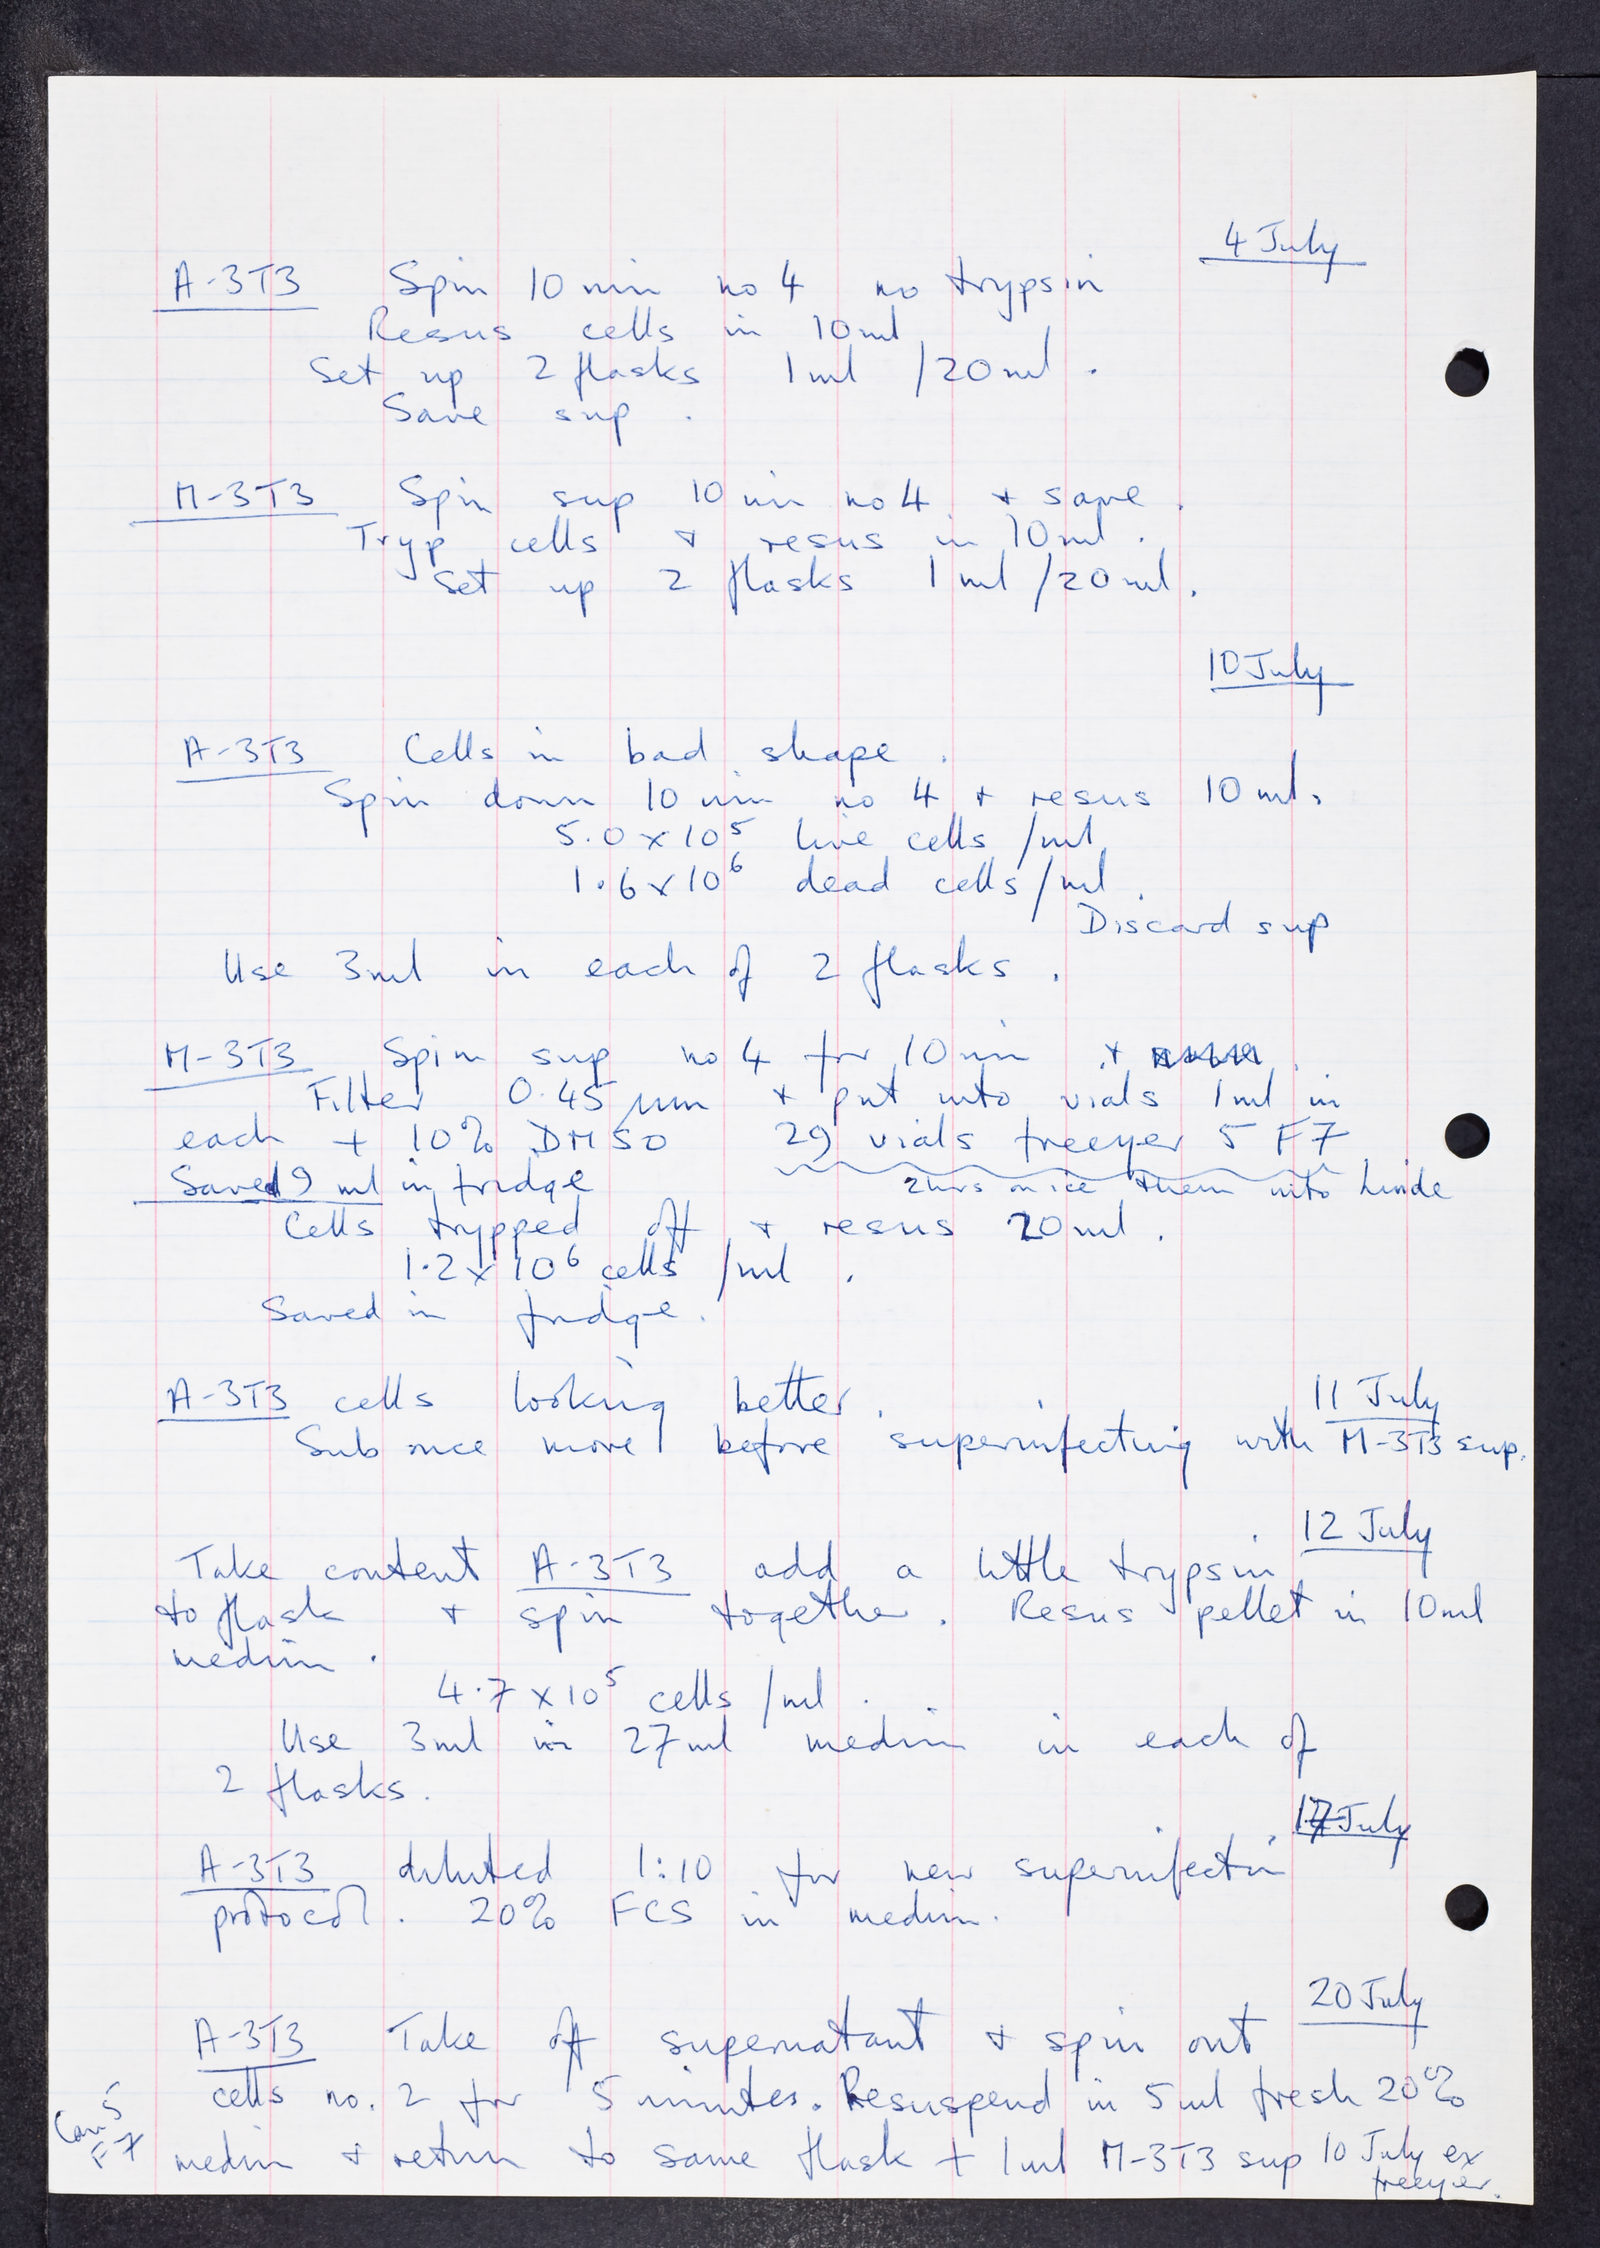 4 July
A-3T3 Spin 10 min no 4 no trypsin
Resus cells in 10ml
Set up 2 flasks 1ml /20ml.
Save sup.
M-3T3 Spin sup 10 min no 4 + save.
Tryp cells + resus in 10ml.
Set up 2 flasks 1ml /20ml.
10 July
A-3T3 Cells in bad shape.
Spin down 10 min no 4 + resus 10ml.
5.0 x 10⁵ live cells /ml
1.6 x 10⁶ dead cells/ml.
Discard sup
Use 3ml in each of 2 flasks.
M-3T3 Spin sup no 4 for 10 min +
Filter 0.45 μm + put into vials 1ml in
each + 10% DMSO 29 vials freezer 5 F7
Saved 9 ml in fridge 2hrs on ice then into Linde
Cells trypped off + resus 20ml.
1.2 x 10⁶ cells /ml.
Saved in fridge.
11 July
A-3T3 cells looking better.
Sub once more before superinfecting with M-3T3 sup.
12 July
Take content A-3T3 add a little trypsin
to flask + spin together. Resus pellet in 10ml
medium.
4.7 x 10⁵ cells /ml.
Use 3ml in 27ml medium in each of
2 flasks.
17 July
A-3T3 diluted 1:10 for new superinfection
protocol. 20% FCS in medium.
20 July
A-3T3 Take off supernatant + spin out
cells no. 2 for 5 minutes. Resuspend in 5ml fresh 20%
Can 5
F7
medium + return to same flask + 1ml M-3T3 sup 10 July ex
freezer.